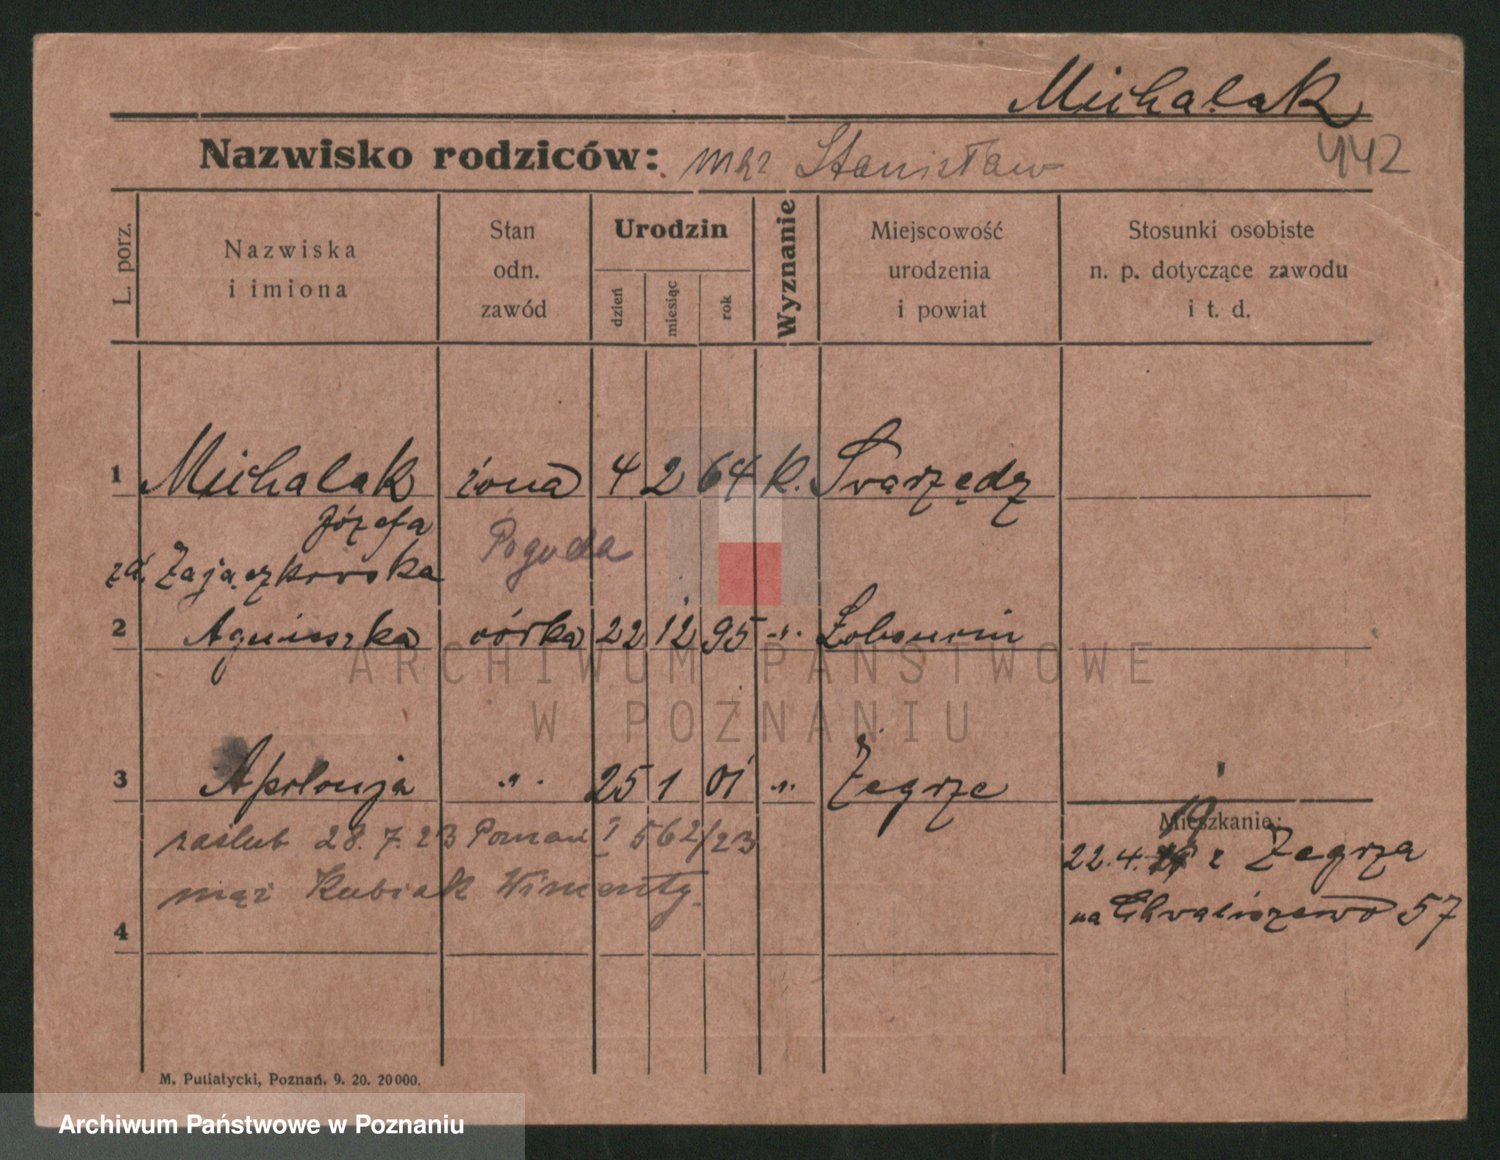 Michalak
442
Nazwisko rodziców: mąż Stanisław
L. porz.
Nazwiska
i imiona
Stan
odn.
zawód
Urodzin
dzień
miesiąc
rok
Wyznanie
Miejscowość
urodzenia
i powiat
Stosunki osobiste
n. p. dotyczące zawodu
i t. d.
1 Michalak żona 4 2 64 k. Swarzędz
Józefa
zd. Zajączkowska
Pogoda
2 Agnieszka córka 22 12 95 -"- 
3 Apolonja " 25 1 01 " Żegrze
zaślub 28.7.23 Poznań I 562/23
mąż Kubiak Wincenty.
4
Mieszkanie:
19
22.4. z Żegrza
na Chwaliszewo 57
M. Putiatycki, Poznań. 9. 20. 20000.
ARCHIWUM PAŃSTWOWE
W POZNANIU
Archiwum Państwowe w Poznaniu